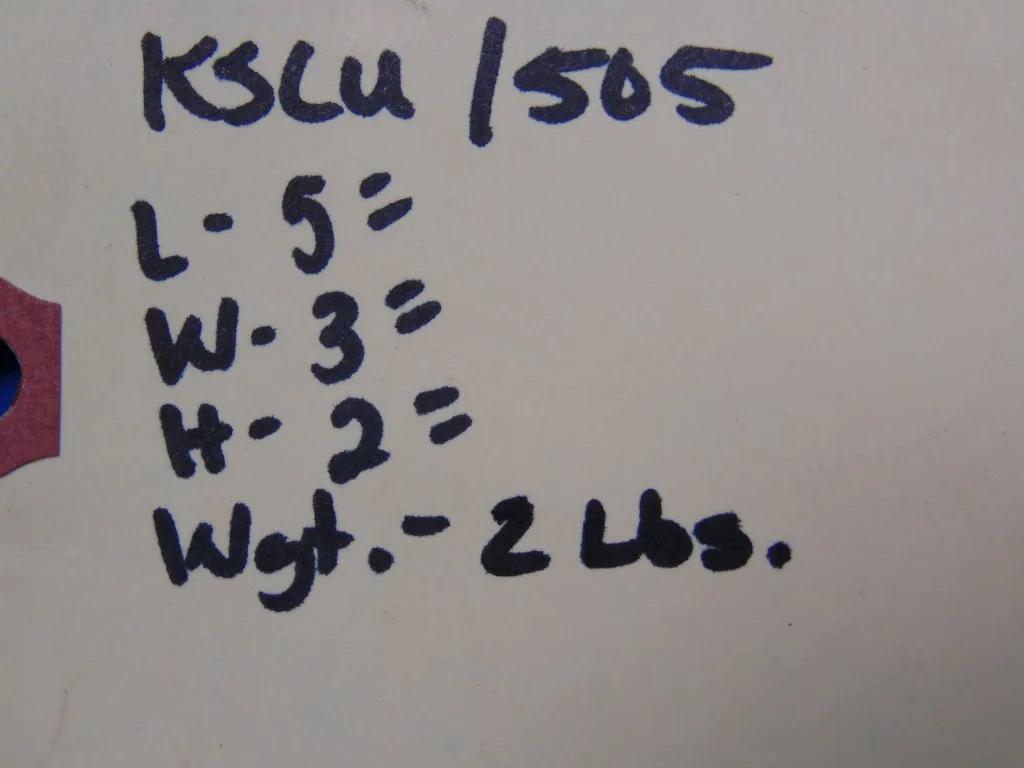 KSCU 1505
L- 5"
W- 3"
H- 2"
Wgt.- 2 Lbs.